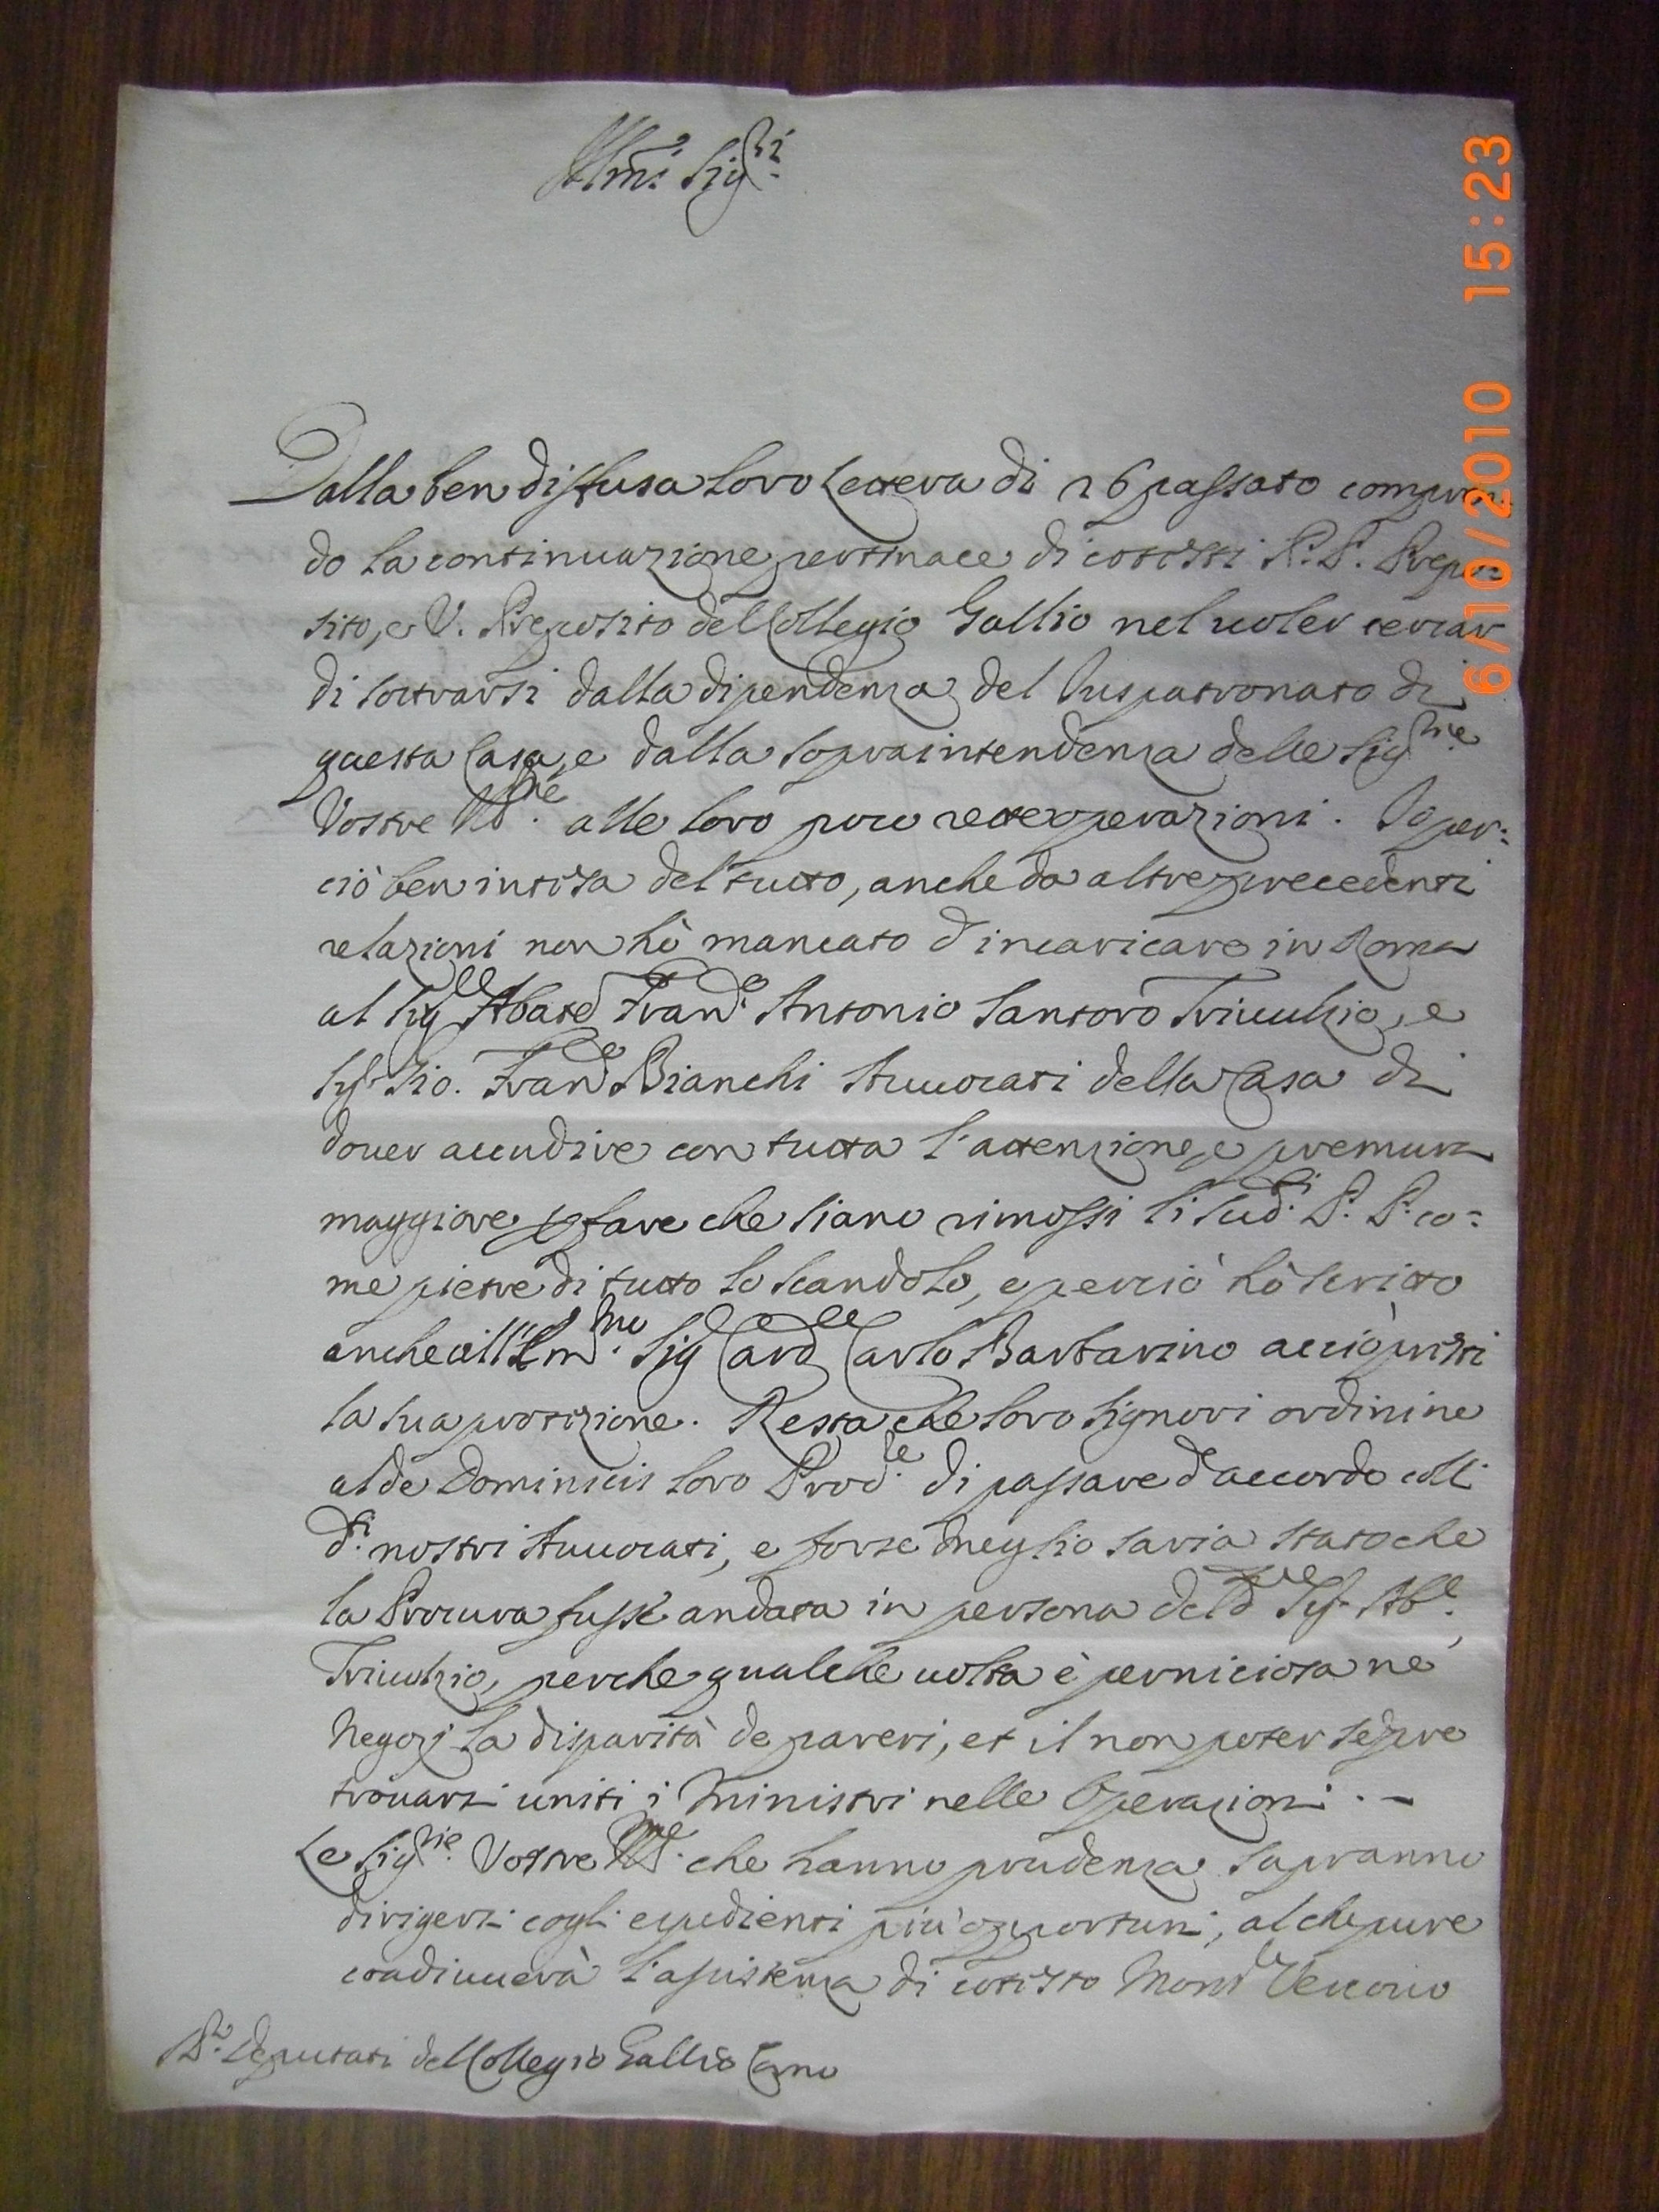 Ill.mi Sig.ri
Dalla ben diffusa loro lettera di 26 passato compren
do la continuazione pertinace di cotesti P.P. Prepo=
sito, e V. Preposito del Collegio Gallio nel uoler cercar
di sottrarsi dalla dipendenza del Iuspatronato di
questa Casa, e dalla sopraintendenza delle Sig.rie
Vostre Ill.me alle loro poco rette operazioni. Io per=
ciò ben intesa del tutto, anche da altre precedenti
relazioni non hò mancato d'incaricare in Roma
al Sig.r Abate Fran.co Antonio Santoro Triuulzio, e
Sig.r Gio. Fran.co Bianchi Auuocati della Casa di
douer accudire con tutta l'attenzione, e premura
maggiore p fare che siano rimossi li sud.ti P.P. co=
me pietre di tutto lo scandolo, e perciò hò scritto
anche all'Em.mo Sig Card.le Carlo Barbarino acciò presti
la sua protezione. Resta che loro Signori ordinine
al de Dominicis loro Prod.re di passare d'accordo colli
d.ti nostri Auuocati, e forse meglio saria stato che
la Procura fusse andata in persona del d.o Sig.r Ab.e
Triuulzio, perche qualche uolta è perniciosa ne
Negozj la disparità de pareri, et il non poter sepre
trouarsi uniti i Ministri nelle Operazioni. -
Le Sig.rie Vostre Ill.me che hanno prudenza sapranno
dirigersi cogli espedienti più opportuni, al che pure
coadiuuerà l'assistenza di cotesto Mons.r Vescouo
SS.ri Deputati del Collegio Gallio Como
6/10/2010 15:23